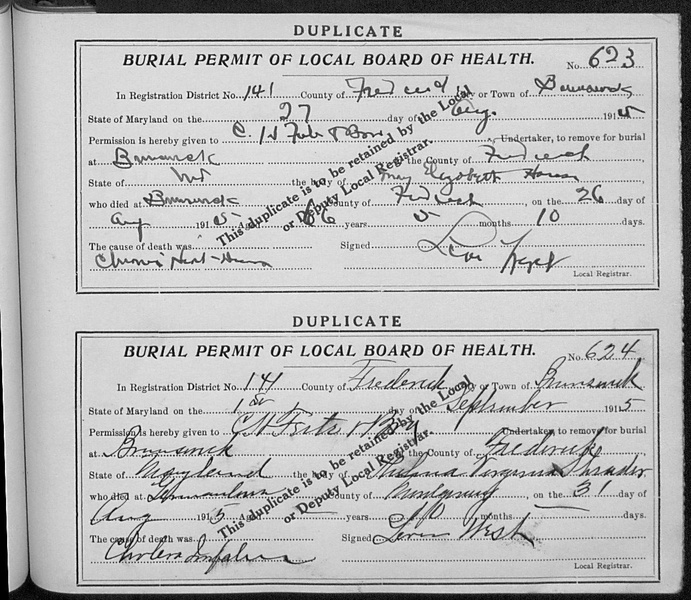 DUPLICATE
BURIAL PERMIT OF LOCAL BOARD OF HEALTH.
No. 623
In Registration District No. 141 County of Frederick City or Town of Brunswick
State of Maryland on the 27 day of Aug. 1915
Permission is hereby given to C. H. & Bro, Undertaker, to remove for burial
at Brunswick the County of Frederick
State of Md the body of May Elizabeth
who died at Brunswick County of Frederick, on the 26 day of
Aug 1915 66 years 5 months 10 days.
The cause of death was Signed
Chronic Heart Levin West
Local Registrar.
This duplicate is to be retained by the Local
or Deputy Local Registrar.
DUPLICATE
BURIAL PERMIT OF LOCAL BOARD OF HEALTH.
No. 624
In Registration District No. 141 County of Frederick City or Town of Brunswick
State of Maryland on the 1st day of September 1915
Permission is hereby given to C. H. & Bro Undertaker, to remove for burial
at Brunswick the County of Frederick
State of Maryland the body of Virginia Shrader
who died at County of Montgomery, on the 31 day of
Aug 1915 years 10 months days.
The cause of death was Signed Levin West
Cholera Infantum
Local Registrar.
This duplicate is to be retained by the Local
or Deputy Local Registrar.